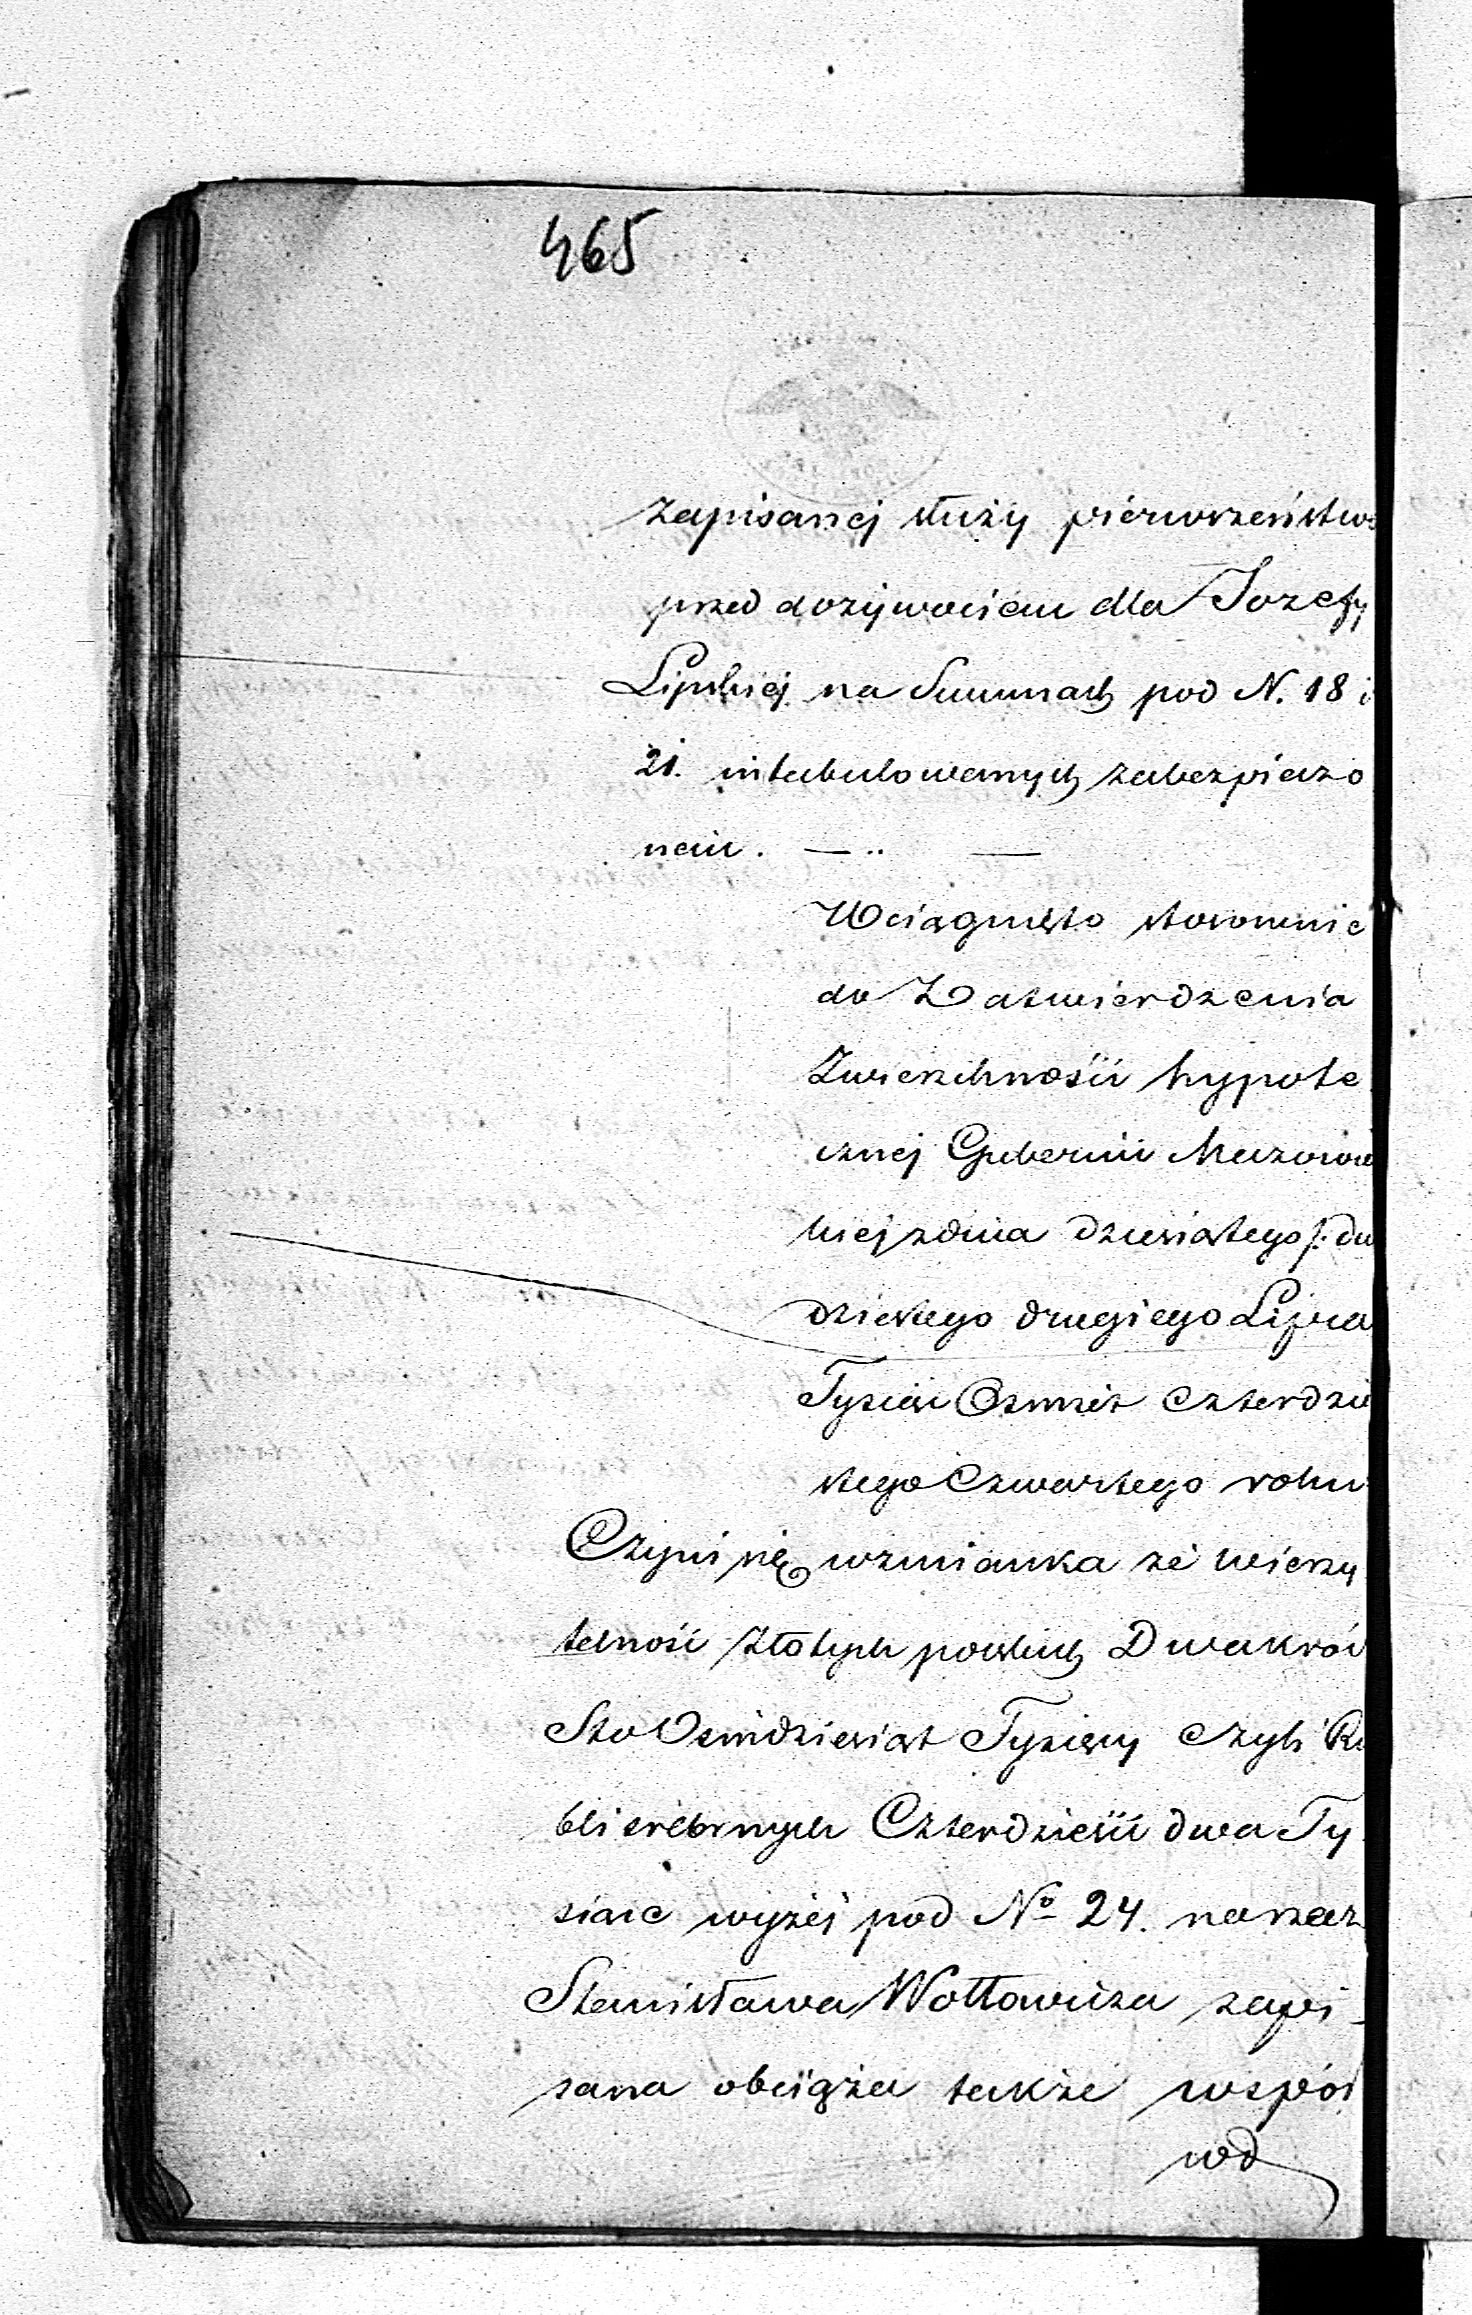 465
zapisanej służy pierwszeństwo
przed dożywociem dla Jozefy
Lipskiej na Summach pod N. 18 i
21. intabulowanych zabezpieczo
nem. — .. —
Wciągnięto stosownie
do Zatwierdzenia
Zwierzchności hypote
cznej Gubernii Mazowie
ckiej z dnia dziesiątego /: dw
dziestego drugiego Lipca
Tysiąc Osmset Czterdzie
stego Czwartego roku
Czyni się wzmianka że wierzy
telność Złotych polskich Dwakróć
Sto Osmdziesiąt Tysięcy czyli Ru
bli srebrnych Czterdzieści dwa Ty
siące wyżej pod No 24. na rzecz
Stanisława Wołłowicza zapi-
sana obciąża także wspól